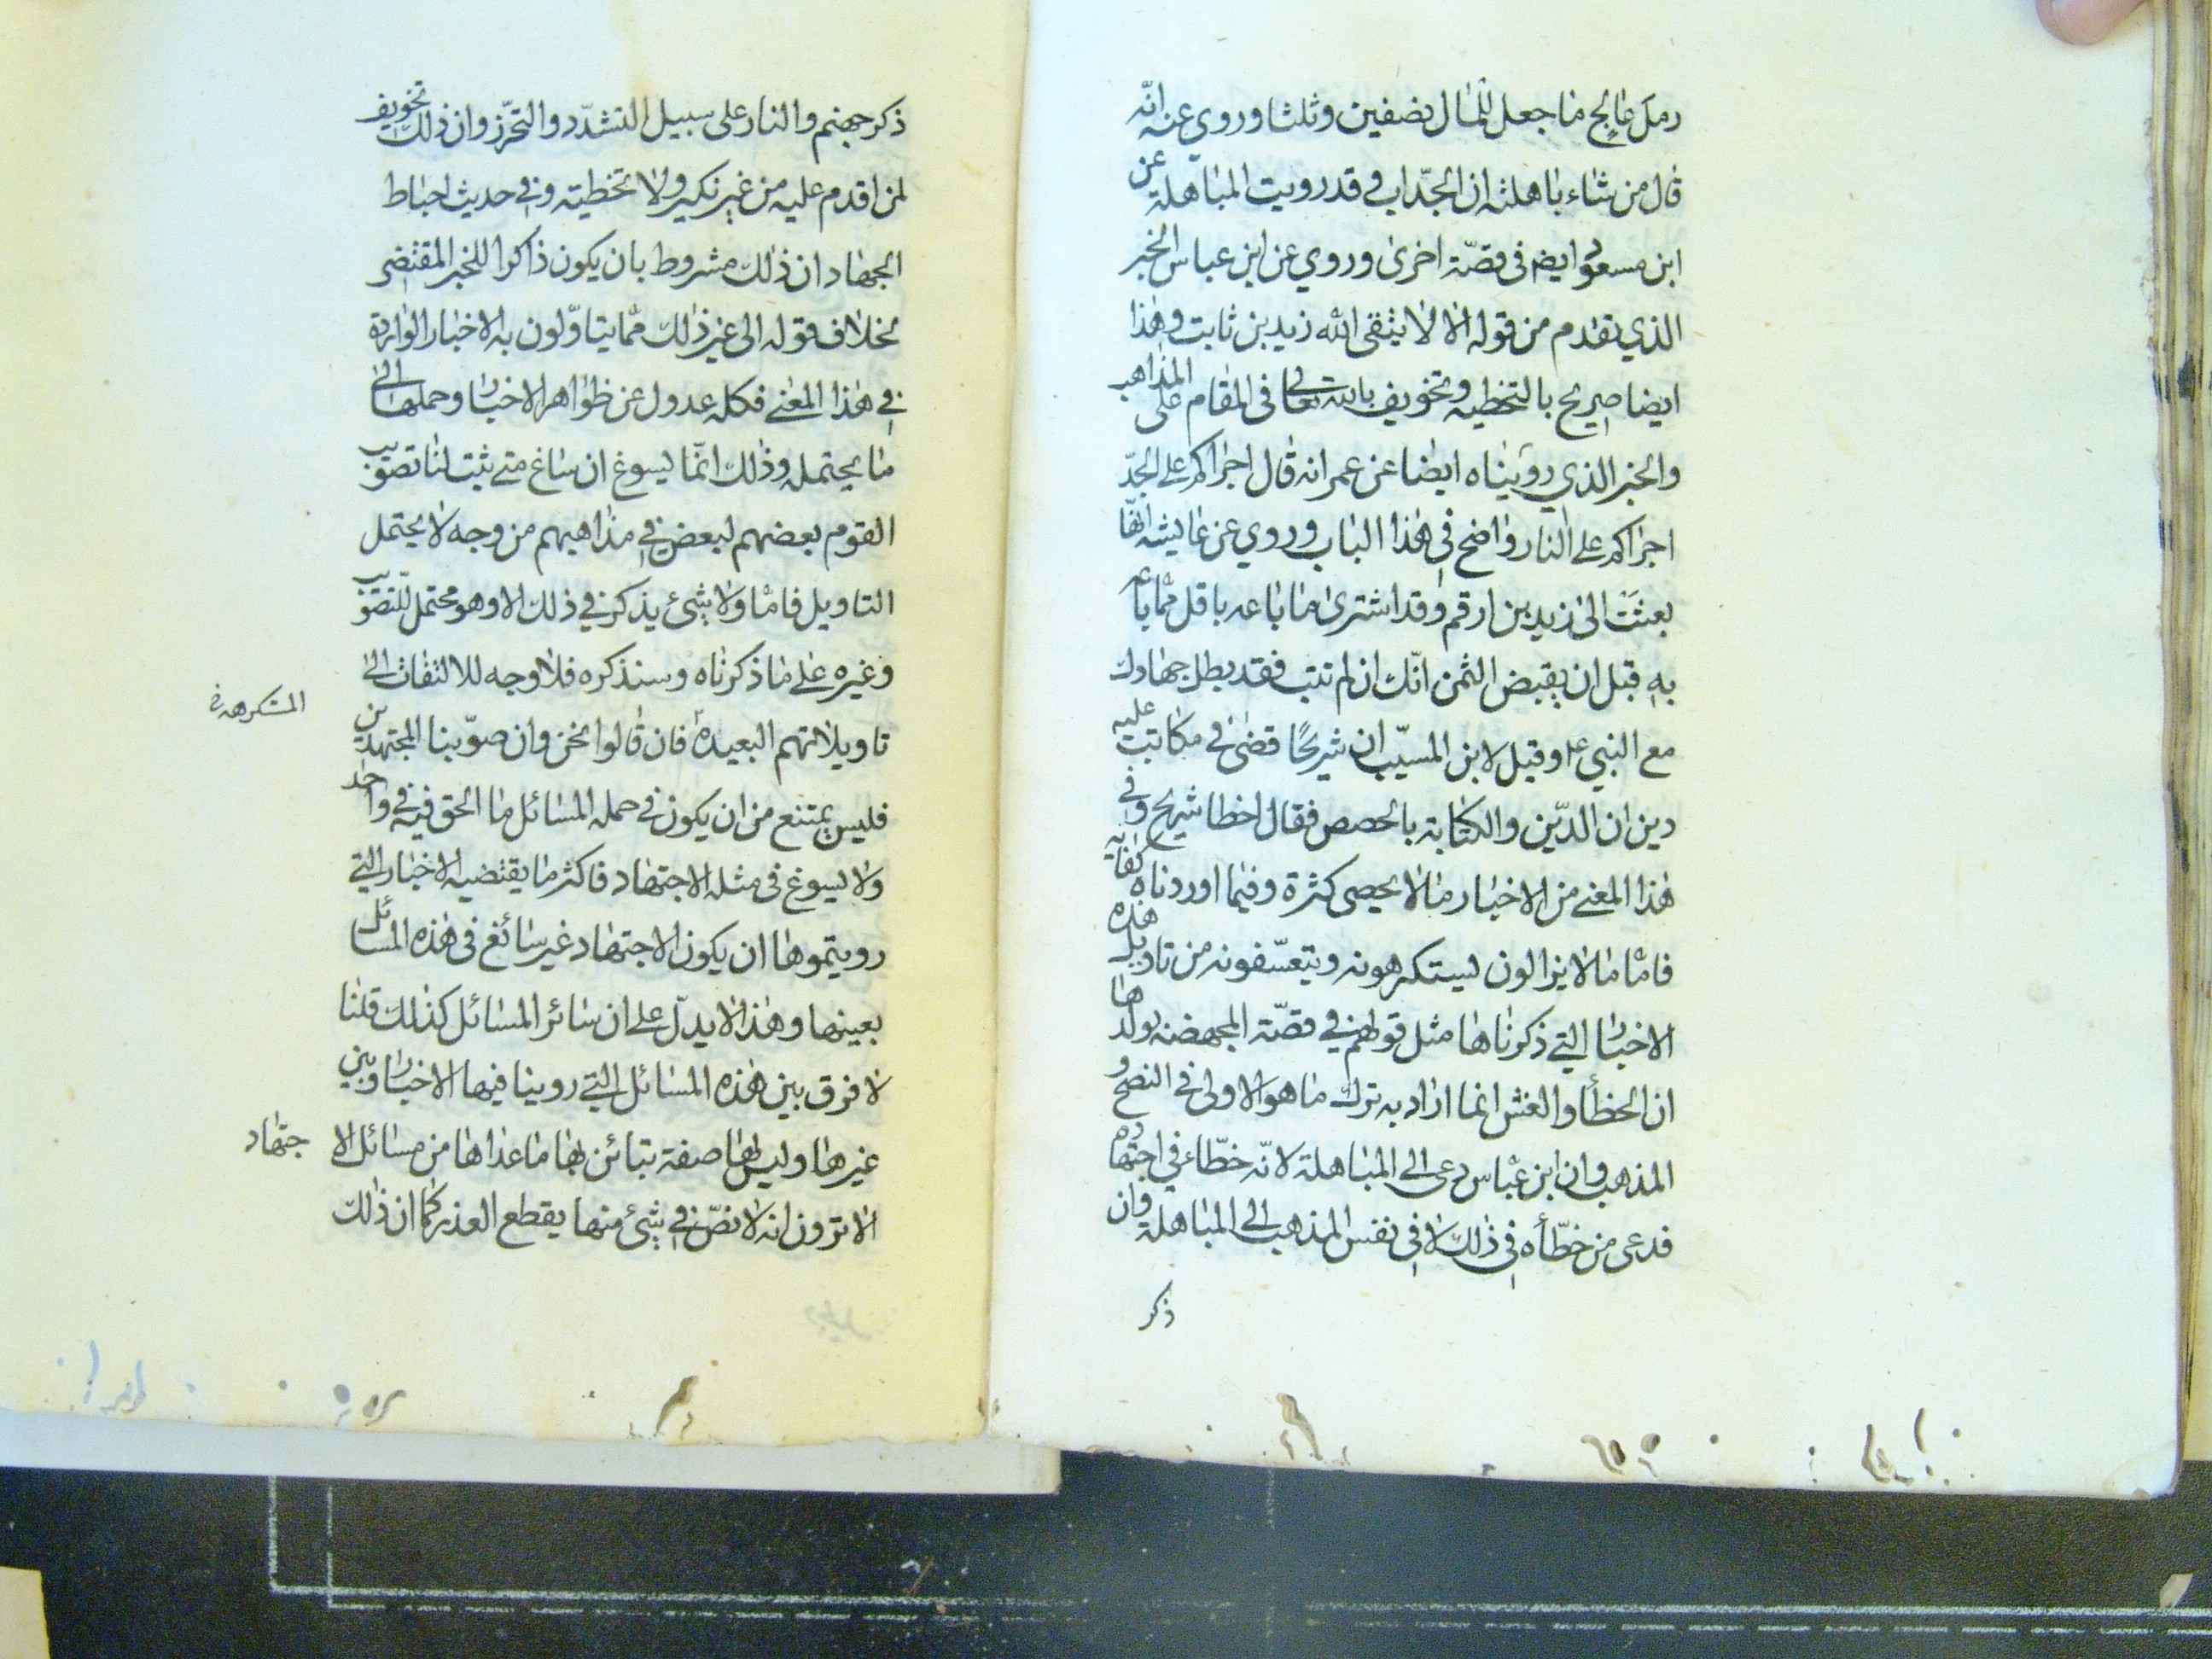 رمل عالج ما جعل للمال نصفين وثلثا وروي عنه انّه
قال من شاء باهلته ان الجدّ اب وقد رويت المباهلة عن
ابن مسعود ايضم في قصّة اخرى وروي عن ابن عباس الخبر
الذي تقدم من قوله الا لا يتقى الله زيد بن ثابت وهذا
ايضا صريح بالتخطيه وتخويف بالله تعالى في المقام على المذاهب
والخبر الذي رويناه ايضا عن عمر انه قال اجراكم على الجدّ
اجراكم على النار واضح في هذا الباب وروي عن عايشه انّها
بعثت الى زيد بن ارقم وقد اشترى ما باعه باقل ممّا باعه
به قبل ان يقبض الثمن انّك ان لم تتب فقد بطل جهادك
مع النبي ع وقيل لابن المسيّب ان شريحًا قضى في مكاتب عليه
دين ان الدّين والكتابة بالحصص فقال اخطا شريح وفي
هذا المعنى من الاخبار ما لا يحصى كثرة وفيما اوردناه كفاية
فامّا ما لا يزالون يستكرهونه ويتعسّفونه من تاويل هذه
الاخبار التي ذكرناها مثل قولهم في قصّة المجهضة بولدها
ان الخطأ والغش انما اراد به ترك ما هو الاولى في النصح و
المذهب وان ابن عبّاس دعى الى المباهلة لانّه خطّاء في اجتهاده
فدعى من خطّأه في ذلك لا في نفس المذهب الى المباهلة وان
ذكر
ذكر جهنم والنار على سبيل التشدّد والتحرّز وان ذلك تخويف
لمن اقدم عليه من غير نكير ولا تخطية وفي حديث احباط
الجهاد ان ذلك مشروط بان يكون ذاكرا للخبر المقتضى
بخلاف قوله الى غير ذلك ممّا يتاوّلون به الاخبار الواردة
في هذا المعنى فكله عدول عن ظواهر الاخبار وحملها الى
ما يحتمله وذلك انّما يسوغ ان ساغ متى ثبت لنا تصويب
القوم بعضهم لبعض في مذاهبهم من وجه لا يحتمل
التاويل فامّا ولا شئ يذكر في ذلك الا وهو محتمل للتصويب
وغيره على ما ذكرناه وسنذكره فلا وجه للالتفات الى
تاويلاتهم البعيدة فان قالوا نحن وان صوّبنا المجتهدين
المستكرهة
فليس يمتنع من ان يكون في حمله المسائل ما الحق فيه في واحد
ولا يسوغ في مثله الاجتهاد فاكثر ما يقتضيه الاخبار التي
رويتموها ان يكون الاجتهاد غير سائغ في هذه المسائل
بعينها وهذا لا يدلّ على ان سائر المسائل كذلك قلنا
لا فرق بين هذه المسائل التي روينا فيها الاخبار وبين
غيرها وليس لها صفة تبائن بها ما عداها من مسائل الا جتهاد
الا ترون انه لا نصّ في شئ منها يقطع العذر كما ان ذلك